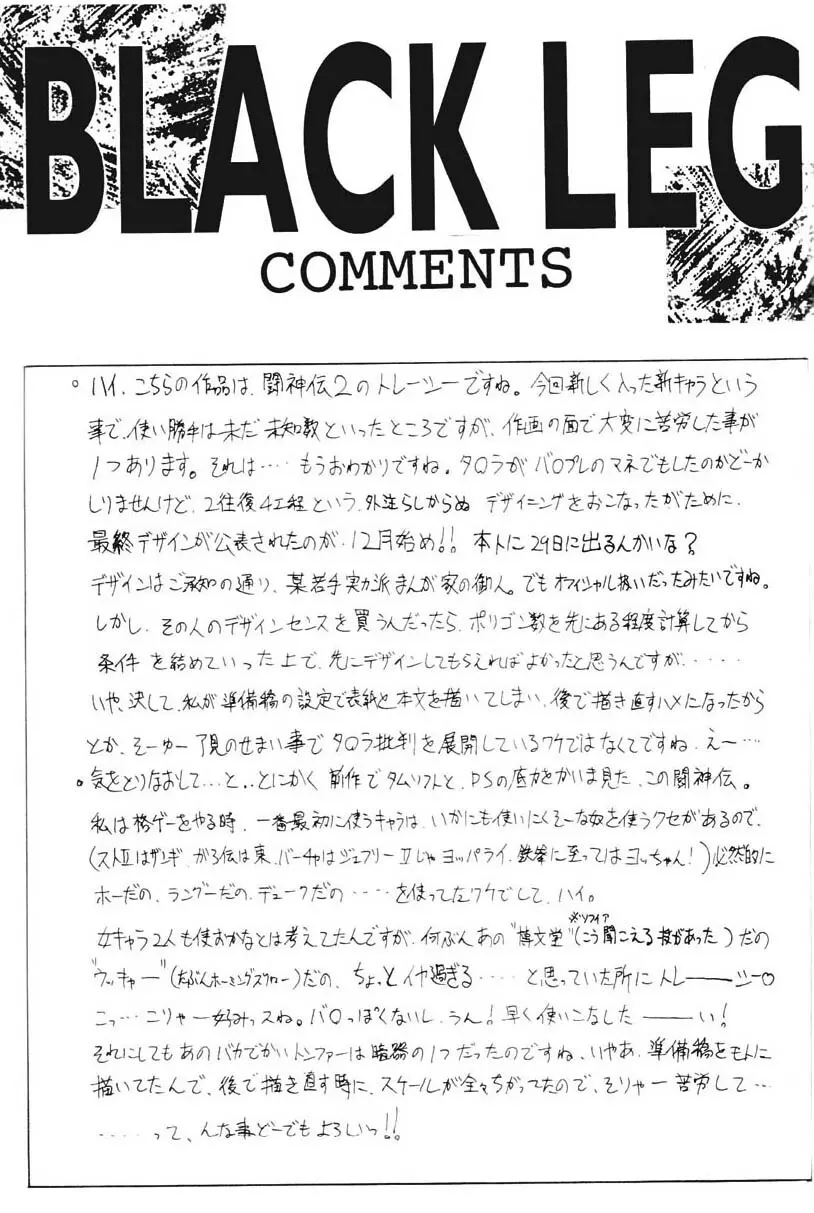 BLACK LEG
COMMENTS
。ハイ、こちらの作品は、闘神伝2のトレーシーですね。今回新しく入った新キャラという
事で、使い勝手は未だ未知数といったところですが、作画の面で大変に苦労した事が
1つあります。それは‥‥もうおわかりですね。タカラがバロプレのマネでもしたのかどーか
しりませんけど、2往復4工程という、外注らしからぬ デザイニングをおこなったがために、
最終デザインが公表されたのが、12月始め!! 本トに29日に出るんかいな?
デザインはご承知の通り、某若手実力派まんが家の御人。でもオフィシャル扱いだったみたいですね。
しかし、その人のデザインセンスを買うんだったら、ポリゴン数を先にある程度計算してから
条件を結めていった上で、先にデザインしてもらえればよかったと思うんですが、‥‥‥
いや、決して、私が準備稿の設定で表紙と本文を描いてしまい、後で描き直すハメになったから
とか、そーゆー了見のせまい事でタカラ批判を展開しているワケではなくてですね、えー‥‥
。気をとりなおして‥‥と‥とにかく 前作でタムソフトと、PSの底力をかいま見た、この闘神伝。
私は格ゲーをやる時、一番最初に使うキャラは、いかにも使いにくそーな奴を使うクセがあるので、
(ストⅡはザンギ、がろ伝は東、バーチャはジェフリーⅡじゃヨッパライ、鉄拳に至ってはヨッちゃん!)必然的に
ホーだの、ラングーだの、デュークだの‥‥‥を使ってたワケでして、ハイ。
女キャラ2人も使おかなとは考えてたんですが、何ぶんあの"博文堂"(こう聞こえる技があった)だの
※ソフィア
"ウッキャー"(たぶんホーミングスクロー)だの、ちょっとイヤ過ぎる‥‥‥と思っていた所にトレ――シー♡
こっ‥‥こりゃー好みっスね。バロっぽくないし、うん! 早く使いこなした――い!
それにしてもあのバカでかいトンファーは暗器の1つだったのですね、いやあ、準備稿をモトに
描いてたんで、後で描き直す時に、スケールが全々ちがってたので、そりゃー苦労して‥‥
‥‥‥って、んな事どーでもよろしいっ!!